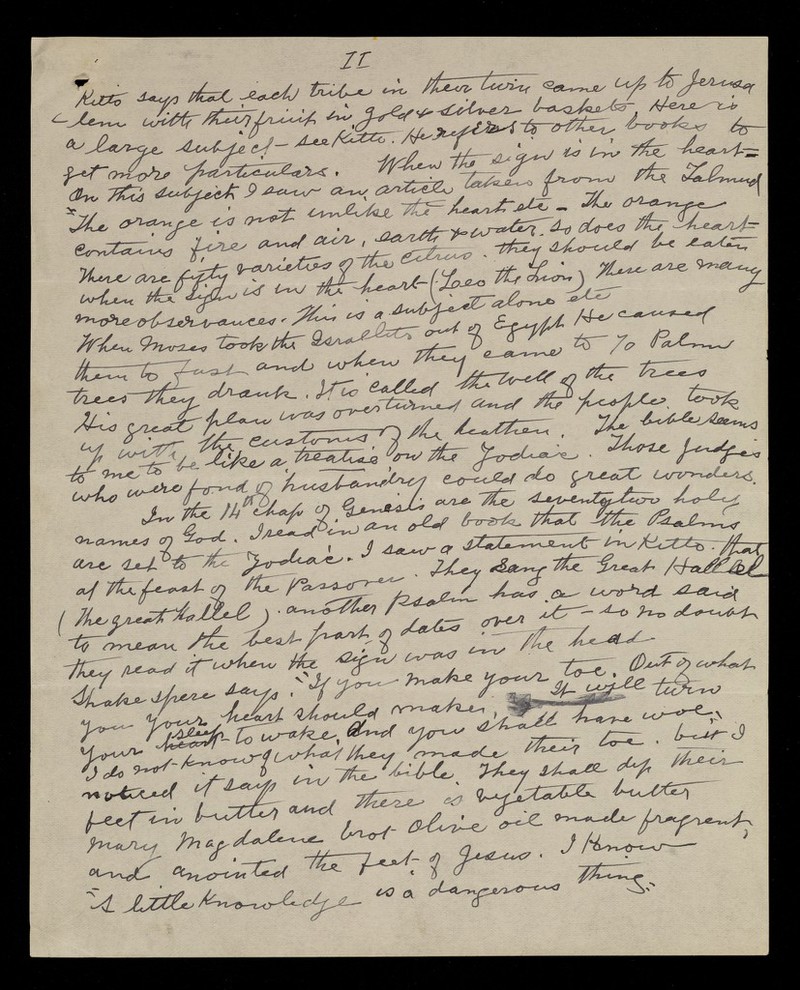 II
Kitto says that each tribe in their turn came up to Jerusa
- lem with their fruit in gold & silver baskets. Here is
a large subject - see Kitto. He refers to other books to
get more particulars. When the sign is in the heart =
On this subject I saw an article taken from the Talmud
"The orange is not unlike the heart etc - The orange
contains fire and air, earth & water. so does the heart -
There are fifty varieties of the citrus. they should be eaten
when the sign is in the heart - (Leo the Lion) There are many
more observances. This is a subject alone etc
When Moses took the Israelits out of Egypt He caused
them to fast and when they came to 70 Palm
trees they drank. It is called the Well of the trees
His great plan was overturned and the people took
up with the customs of the heathen. The bible seems
to me to be like a treatise on the Zodiac. Those Judges
who were fond of husbandry could do great wonders.
In the 14th chap of Genesis are the seventytwo holy
names of God. I read in an old book that the Psalms
are set to the Zodiac. I saw a statement in Kitto. that
at the feast of the Passover. They sang the Great Hallel
(the great Hallel). another Psalm has a word said
to mean the best part of dates over it - so no doubt
they read it when the sign was in the head
Shakespere says. "If you make your toe. Out of what
you your heart should make. It will turn
your heart sleep to wake. And you shall have woe."
I do not know of what they made their toe. but I
noticed it says in the bible. They shall dip their
feet in butter and there is vegetable butter
Mary Magdalene brot Olive oil made fragrent,
and anointed the feet of Jesus. I Know
"A little Knowledge is a dangerous thing."